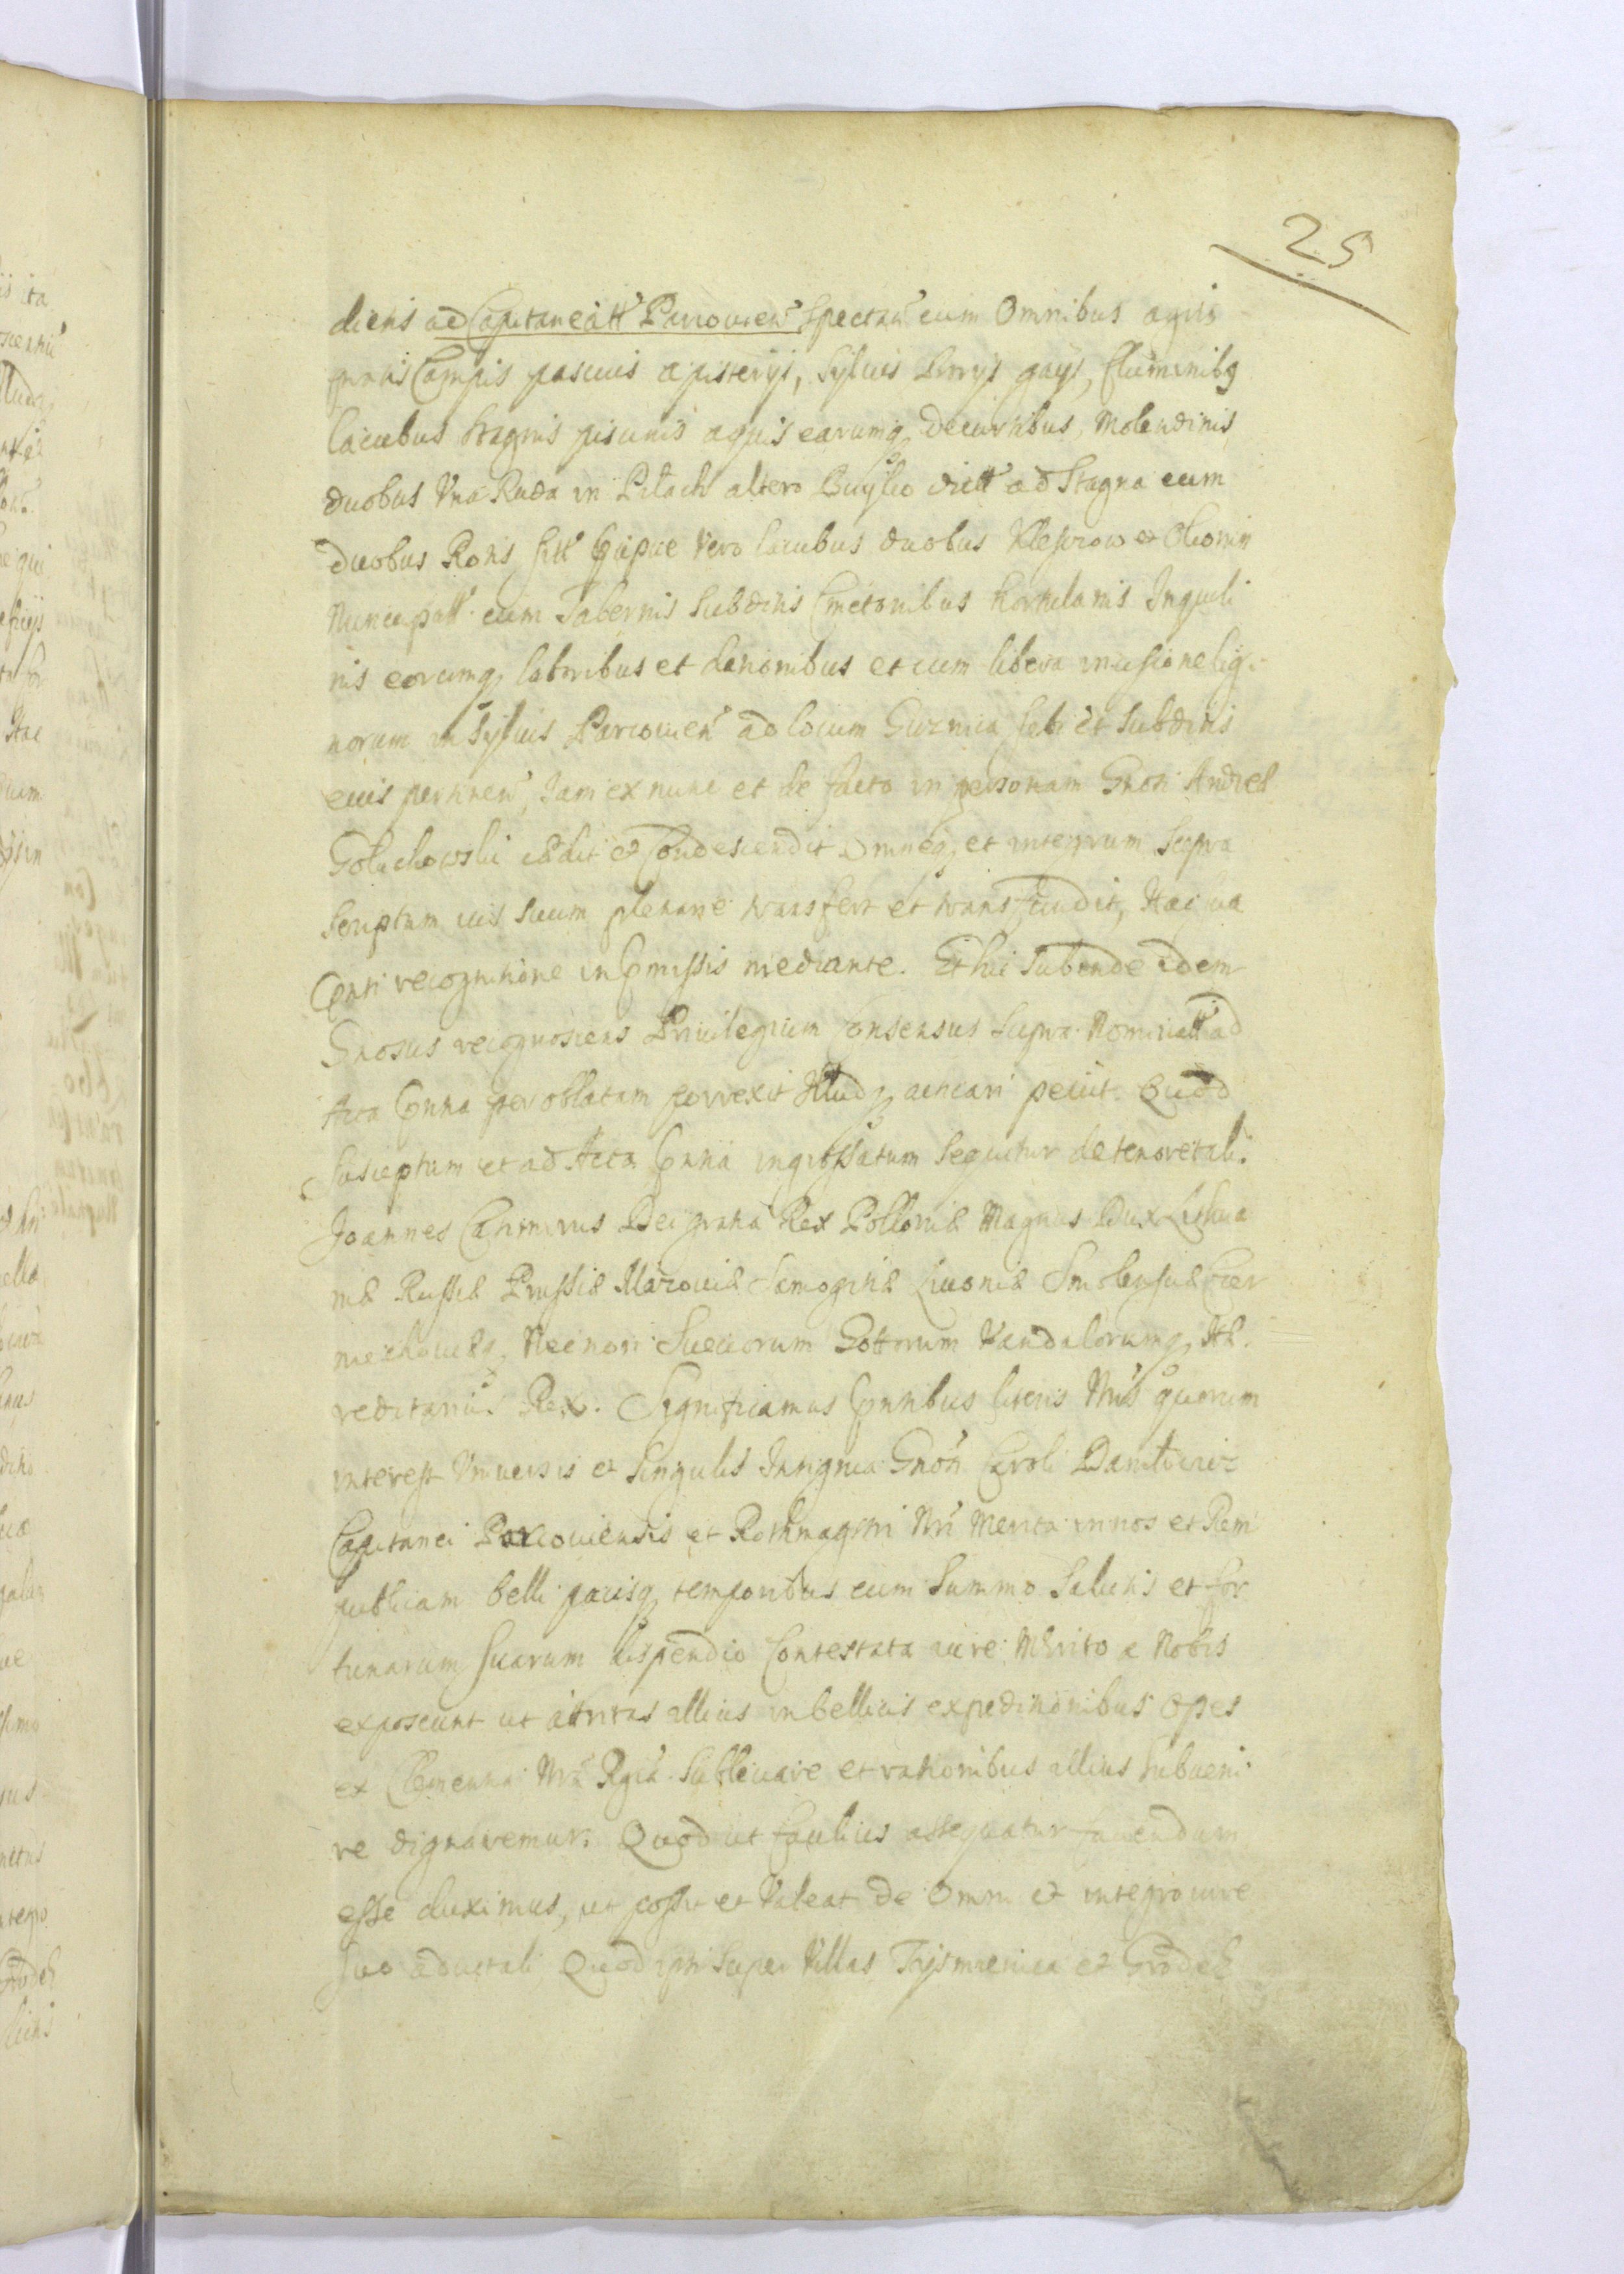 25
diens ad Capitaneatt Parcouien Spectan cum Omnibus agris
pratis Campis pascuis apisterijs, Sylvis Borrys gays, fluminibq
lacubus Stagnis piscinis aquis earumq, Decursibus, Molendinis
duobus Vna Ruda in Pilach altero dictt ad Stagna cum
duobus Rotis sitt vero lacubus duobus et
Nuncupatt cum Tabernis Subditis Cmetonibus hortulanis Inquili
nis eorumq, laboribus et dationibus et cum libera incisione lig-
norum in Syluis Parcouien ad locum et Subditis
eius pertinen, Iam ex nunc et de facto in personam Gnosi Andreæ
Goluchowski cædit et Condescendit Omneq, et integrum Supra
Scriptum ius suum plenarie transfert et transfundit,
Cpnti recognitione in Cpmissis mediante. Et hic Subinde idem
Gnosus recognoscens Priuilegium Consensus Supra Nominatt ad
Acta Cpnna per oblatam porrexit Illudq, acticari petiit. Quod
Susceptum et ad Acta Cpnna ingrossatum Sequitur de tenore tali.
Joannes Casimirus Dei gratia Rex Polloniæ Magnus Dux Lithua
niæ Russiæ Prussiæ Mazouiæ Samogitiæ Liuoniæ Smolensiæ Czer
niechouiæq, Necnon Suecorum Gottorum Vandalorumq, Hæ.
reditarius Rex. Significamus Cpntibus literis Nris quorum
interest Vniuersis et Singulis Insignia Gnosi Caroli
Capitanei Parcouiensis et Rothmagistri Nri Merita in nos et Rem
publicam belli pacisq, temporibus cum Summo Salutis et for
tunarum Suarum dispendio Contestata iure Merito a Nobis
exposcunt ut attritas illius in bellicis expeditionibus Opes
ex Clementia Nra Rgia Subleuare et rationibus illius Subueni
re dignaremur. Quod ut facilius assequatur fauendum
esse duximus, ut possit et Valeat de Omni et integro iure
suo aduitali, Quod ipsi Super Villas Tysmienica et Grodek